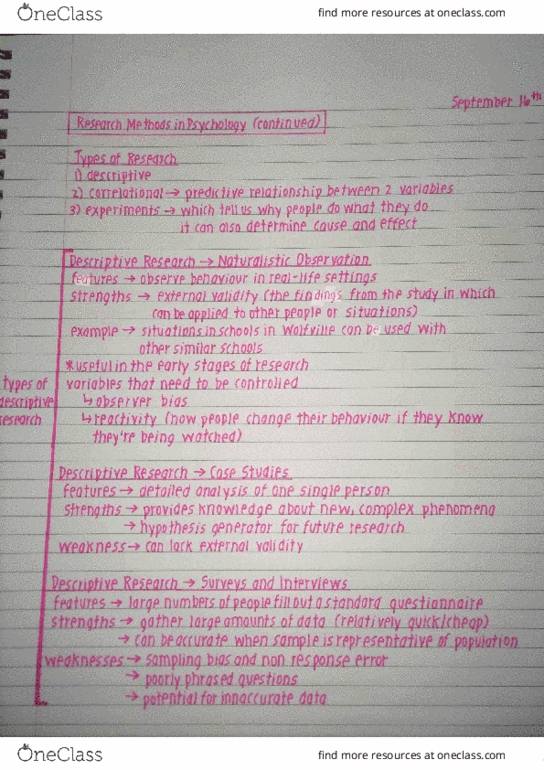 OneClass
find more resources at oneclass.com
September 16th
Research Methods in Psychology (continued)
Types of Research
1) descriptive
2) correlational → predictive relationship between 2 variables
3) experiments → which tell us why people do what they do
it can also determine cause and effect
Descriptive Research → Naturalistic Observation
features → observe behaviour in real-life settings
strengths → external validity (the findings from the study in which
can be applied to other people or situations)
example → situations in schools in Wolfville can be used with
other similar schools
*useful in the early stages of research
variables that need to be controlled
↳ observer bias
↳ reactivity (how people change their behaviour if they know
they're being watched)
types of
descriptive
research
Descriptive Research → Case Studies
features → detailed analysis of one single person
strengths → provides knowledge about new, complex phenomena
→ hypothesis generator for future research
weakness → can lack external validity
Descriptive Research → Surveys and Interviews
features → large numbers of people fill out a standard questionnaire
strengths → gather large amounts of data (relatively quick/cheap)
→ can be accurate when sample is representative of population
weaknesses → sampling bias and non response error
→ poorly phrased questions
→ potential for innaccurate data
OneClass
find more resources at oneclass.com